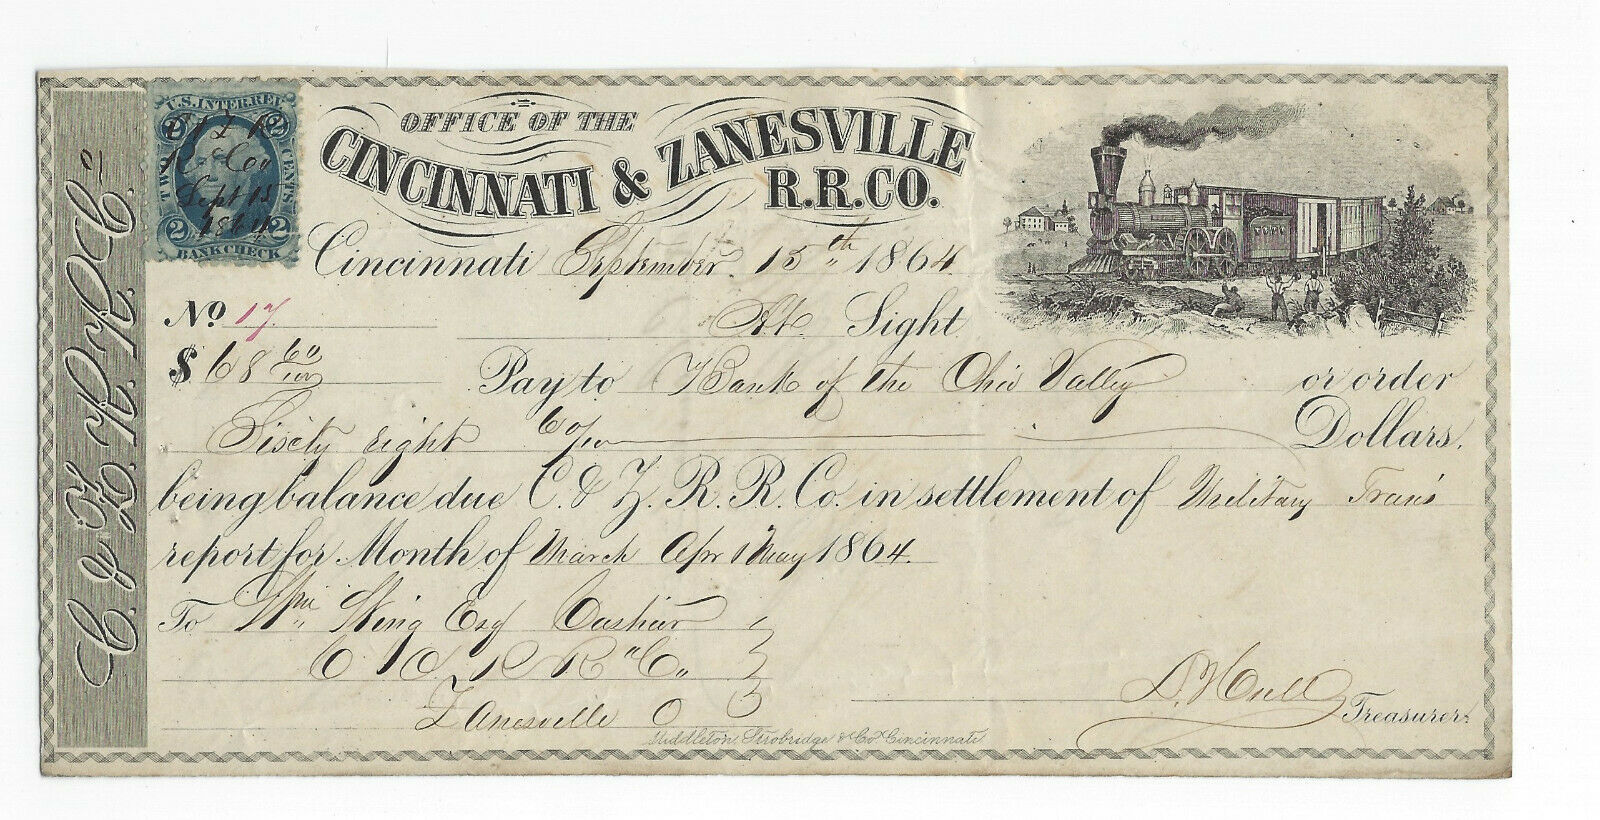 C. & Z. R. R. Co.
U.S. INTER. REV.
2 2
TWO CENTS
C & Z R
R Co
Sept 15
1864
2 2
BANK CHECK
OFFICE OF THE
CINCINNATI & ZANESVILLE
R.R.CO.
Cincinnati September 15th 1864
No 17
At Sight
$68 60/100
Pay to Bank of the Ohio Valley or order
Sixty eight 60/100 Dollars,
being balance due C. & Z. R. R. Co. in settlement of Military Trans
report for Month of March Apr & May 1864.
To Wm Wing Esq Cashier
R R Co
Zanesville O
Treasurer.
Middleton, Strobridge & Co. Cincinnati